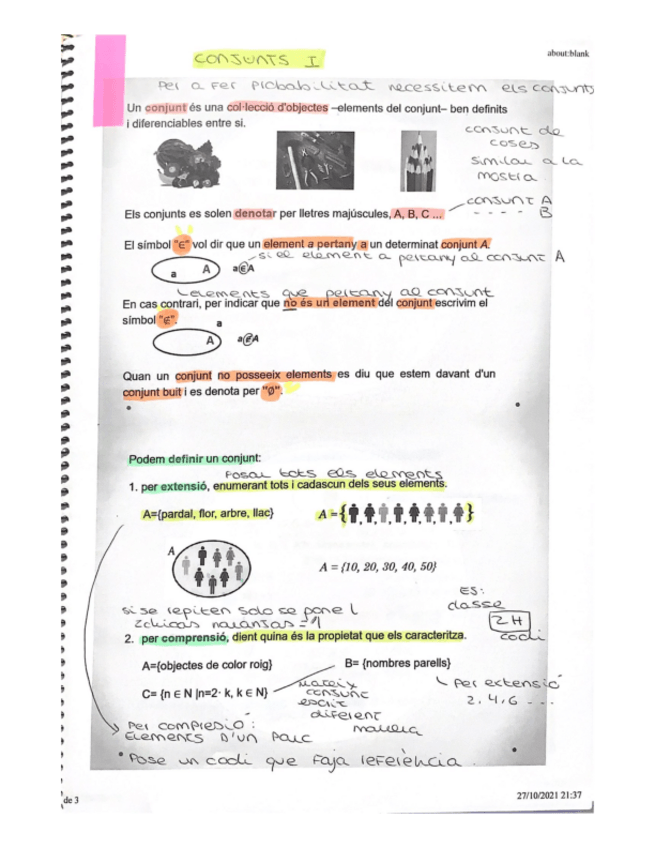 CONJUNTS I
about:blank
Per a fer probabilitat necessitem els conjunts
Un conjunt és una col·lecció d'objectes –elements del conjunt– ben definits
i diferenciables entre si.
conjunt de
coses
similar a la
mostra
Els conjunts es solen denotar per lletres majúscules, A, B, C ...
conjunt A
- - - - B
El símbol "∈" vol dir que un element a pertany a un determinat conjunt A.
si el element a pertany al conjunt A
a A a∈A
elements que pertany al conjunt
En cas contrari, per indicar que no és un element del conjunt escrivim el
símbol "∉". a
A a∉A
Quan un conjunt no posseeix elements es diu que estem davant d'un
conjunt buit i es denota per "Ø".
Podem definir un conjunt:
Posar tots els elements
1. per extensió, enumerant tots i cadascun dels seus elements.
A={pardal, flor, arbre, llac} A = { , , , , , , , }
A
A = {10, 20, 30, 40, 50}
si se repiten solo se pone 1
2 chicas naranjas = 1
ES:
classe
2H
codi
2. per comprensió, dient quina és la propietat que els caracteritza.
A={objectes de color roig} B= {nombres parells}
C= {n ∈ N |n=2· k, k ∈ N}
mateix
conjunt
escrit
diferent
manera
Per extensió
2, 4, 6 - - -
Per compresió:
Elements D'un Parc
Pose un codi que faja referència
de 3
27/10/2021 21:37